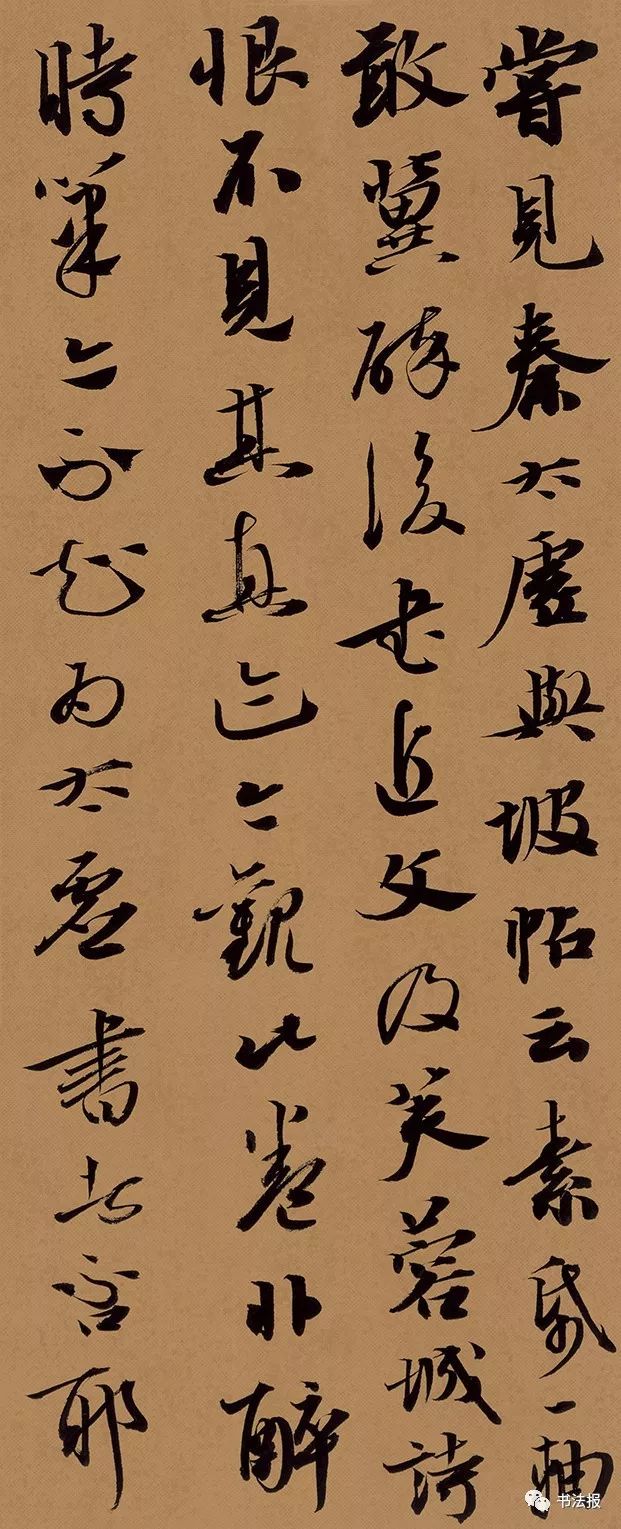 嘗見秦太虛與坡帖云素帋一軸
敢冀醉後書近文及芙蓉城詩
恨不見其真迹今觀此卷非醉
時筆今為太虛書否耶
书法报